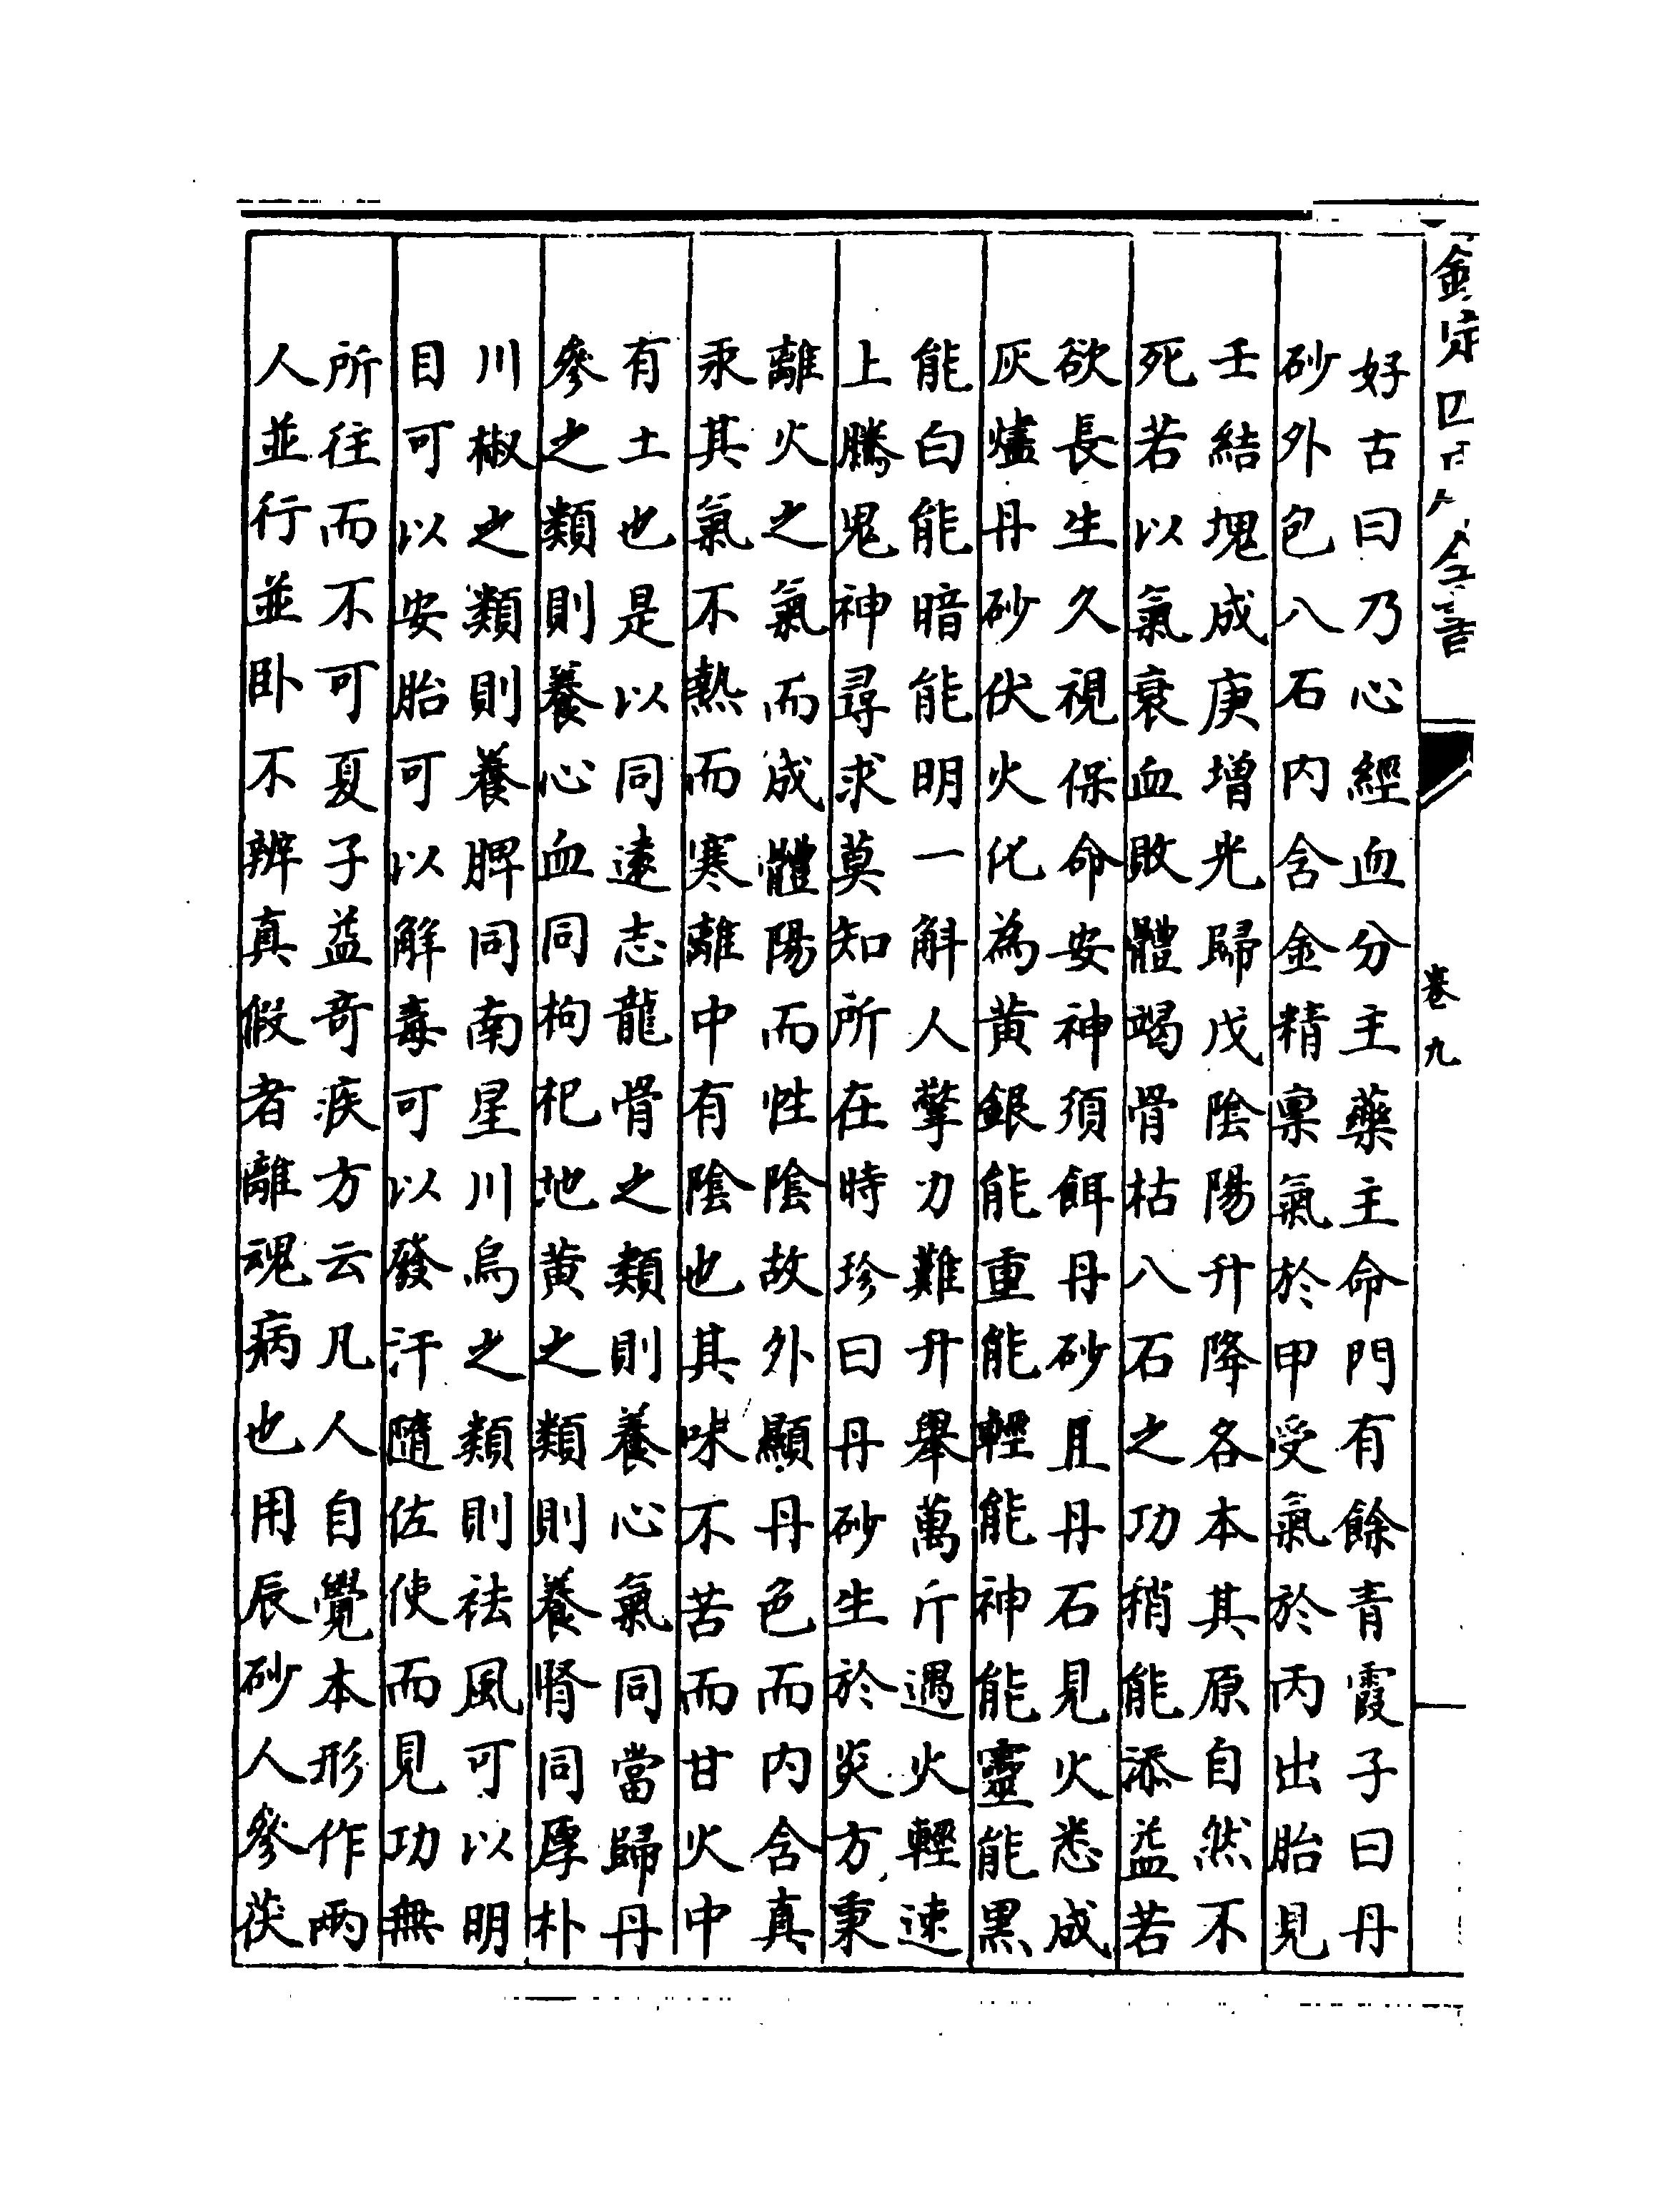 欽定四庫全書
卷九
好古曰乃心經血分主藥主命門有餘青霞子曰丹
砂外包八石內含金精稟氣於甲受氣於丙出胎見
壬結塊成庚增光歸戊陰陽升降各本其原自然不
死若以氣衰血敗體竭骨枯八石之功稍能添益若
欲長生久視保命安神須餌丹砂且丹石見火悉成
灰燼丹砂伏火化為黃銀能重能輕能神能靈能黑
能白能暗能明一斛人擎力難升舉萬斤遇火輕速
上騰鬼神尋求莫知所在時珍曰丹砂生於炎方秉
離火之氣而成體陽而性陰故外顯丹色而內含真
汞其氣不熱而寒離中有陰也其味不苦而甘火中
有土也是以同遠志龍骨之類則養心氣同當歸丹
參之類則養心血同枸杞地黃之類則養腎同厚朴
川椒之類則養脾同南星川烏之類則祛風可以明
目可以安胎可以解毒可以發汗隨佐使而見功無
所往而不可夏子益奇疾方云凡人自覺本形作兩
人並行並臥不辨真假者離魂病也用辰砂人參茯